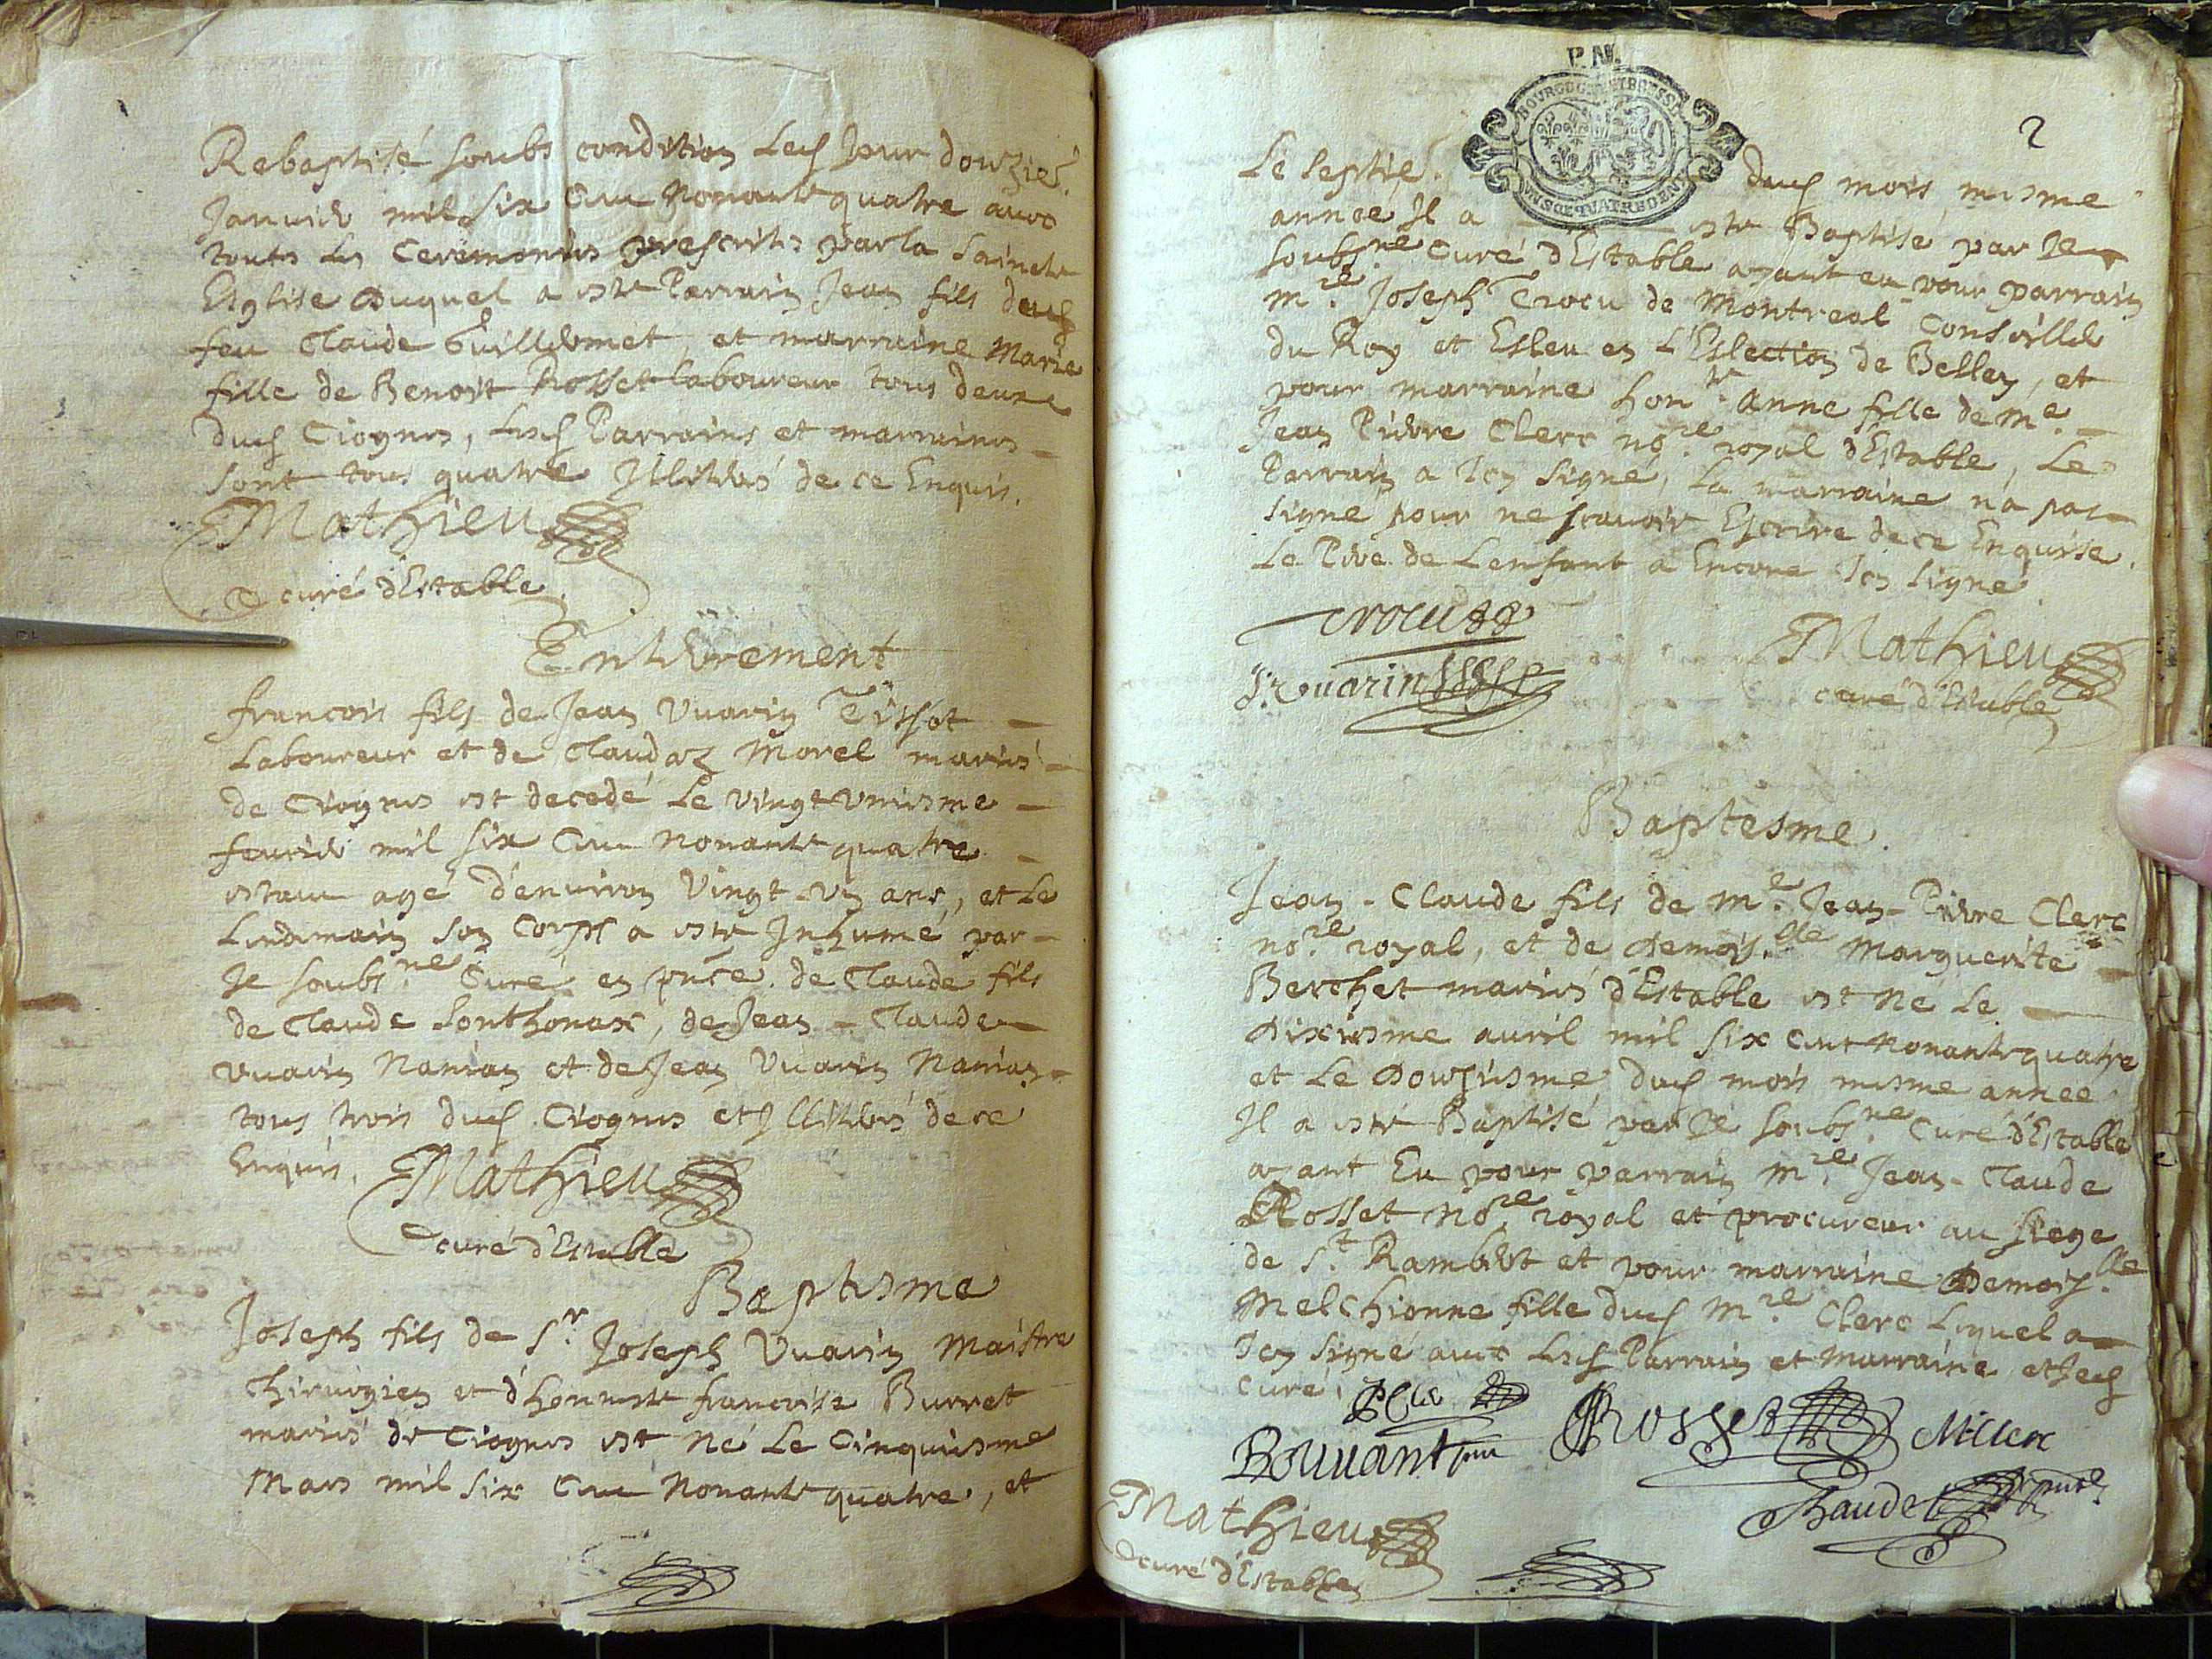 Rebaptisé soubs condition led Jour douzie.
Janvier mil six cent nonante quatre avec
toutes les Ceremonies prescrites par la Saincte
Esglise duquel a esté Parrain Jean fils dud
feu Claude Guillermet, et marraine Marie
fille de Benoit Rosset laboureur tous deux
dud Ciognes, lesd Parrains et marraines
sont tous quatre Illiteres de ce Enquis.
Mathieu
curé d'Estable
Enterrement
francois fils de Jean Vuarin Tissot
Laboureur et de Claudaz Morel mariés
de Ciognes est decedé Le vingt uniesme
feurier mil six cent nonante quatre
estant agé d'enuiron Vingt-un ans, et Le
Lendemain son Corps a esté Inhumé par
Je soubs.né Curé en pnce. de Claude fils
de Claude Sonthonax, de Jean-Claude
Vuarin Nanian et de Jean Vuarin Nanian
tous trois dud Ciognes et Illiteres de ce
Enquis. Mathieu
curé d'Estable
Baptesme
Joseph fils de S.r Joseph Vuarin Maistre
Chirurgien et d'honneste francoise Burret
mariés de Ciognes est né Le Cinquiesme
Mars mil six cent Nonante quatre, et
2
P. N.
BOURGOGNE ET BRESSE
Le septie. dud mois mesme
année Il a esté Baptisé par Je
soubs.né Curé d'Estable ayant eu pour parrain
m.re Joseph Trocu de Montreal Conseiller
du Roy et Esleu en L'Eslection de Belley, et
pour marraine hon.te anne fille de M.e
Jean Pierre Clerc no.re royal d'Estable, Le
Parrain a Icy signé, La marraine n'a pas
signé pour ne scavoir Escrire de ce Enquise.
Le Pere de Lenfant a Encore Icy signé
Trocu
J. Vuarin
Mathieu
curé d'Estable
Baptesme.
Jean-Claude fils de M.e Jean-Pierre Clerc
no.re royal, et de Demois.lle Marguerite
Berchet mariés d'Estable est né Le
dixiesme auril mil six cent nonante quatre
et Le douziesme dud mois mesme année
Il a esté Baptisé par Je soubs.né Curé d'Estable
ayant Eu pour parrain M.re Jean-Claude
Rosset No.re royal et procureur au siege
de S.t Rambert et pour marraine Demois.lle
Melchionne fille dud M.re Clerc Lequel a
Icy signé avec Lesd Parrain et Marraine et Jed
curé.
Bouuant
Rosset
Mathieu
curé d'Estable